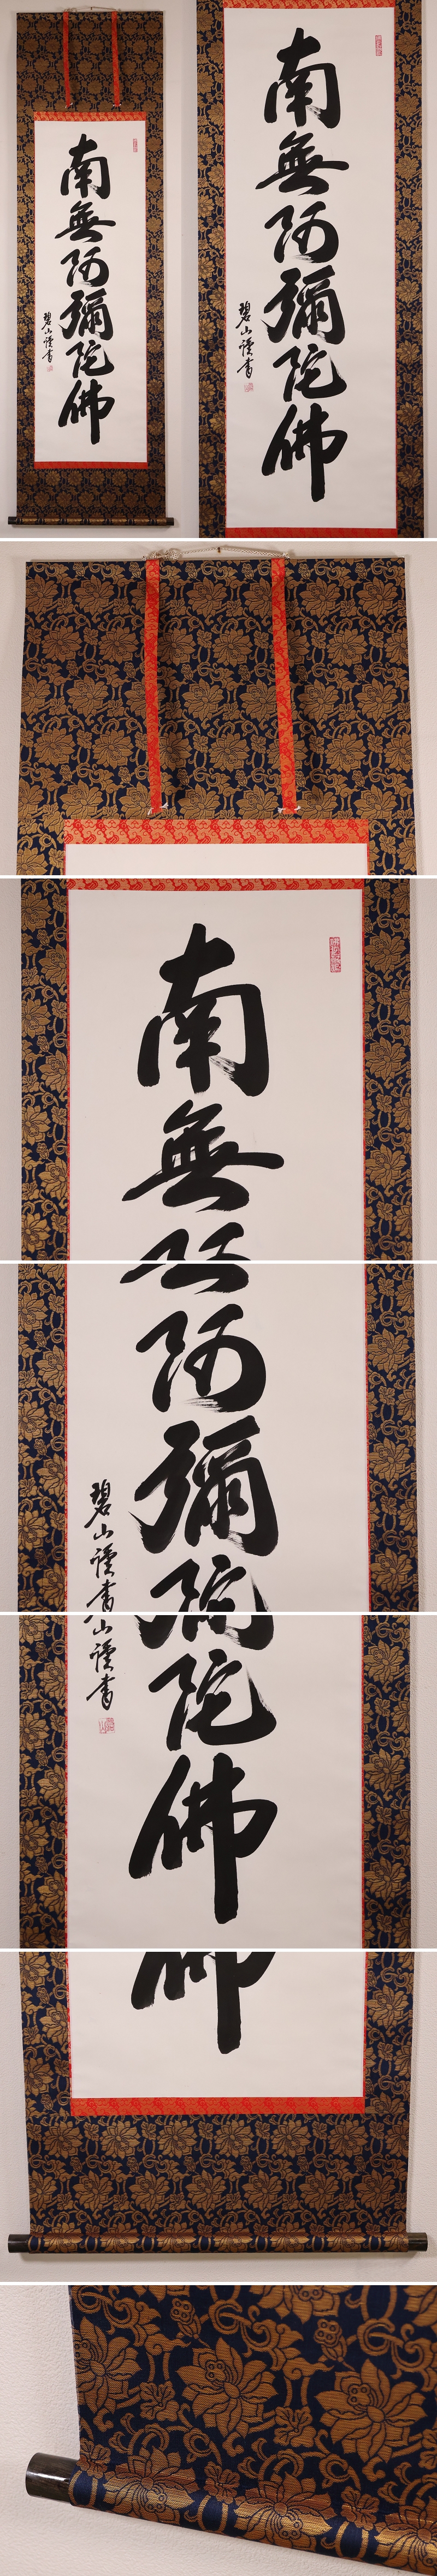 南無阿彌陀佛
碧山謹書
南無阿彌陀佛
碧山謹書
南無
無阿彌陀
碧山謹書
彌陀佛
山謹書
佛